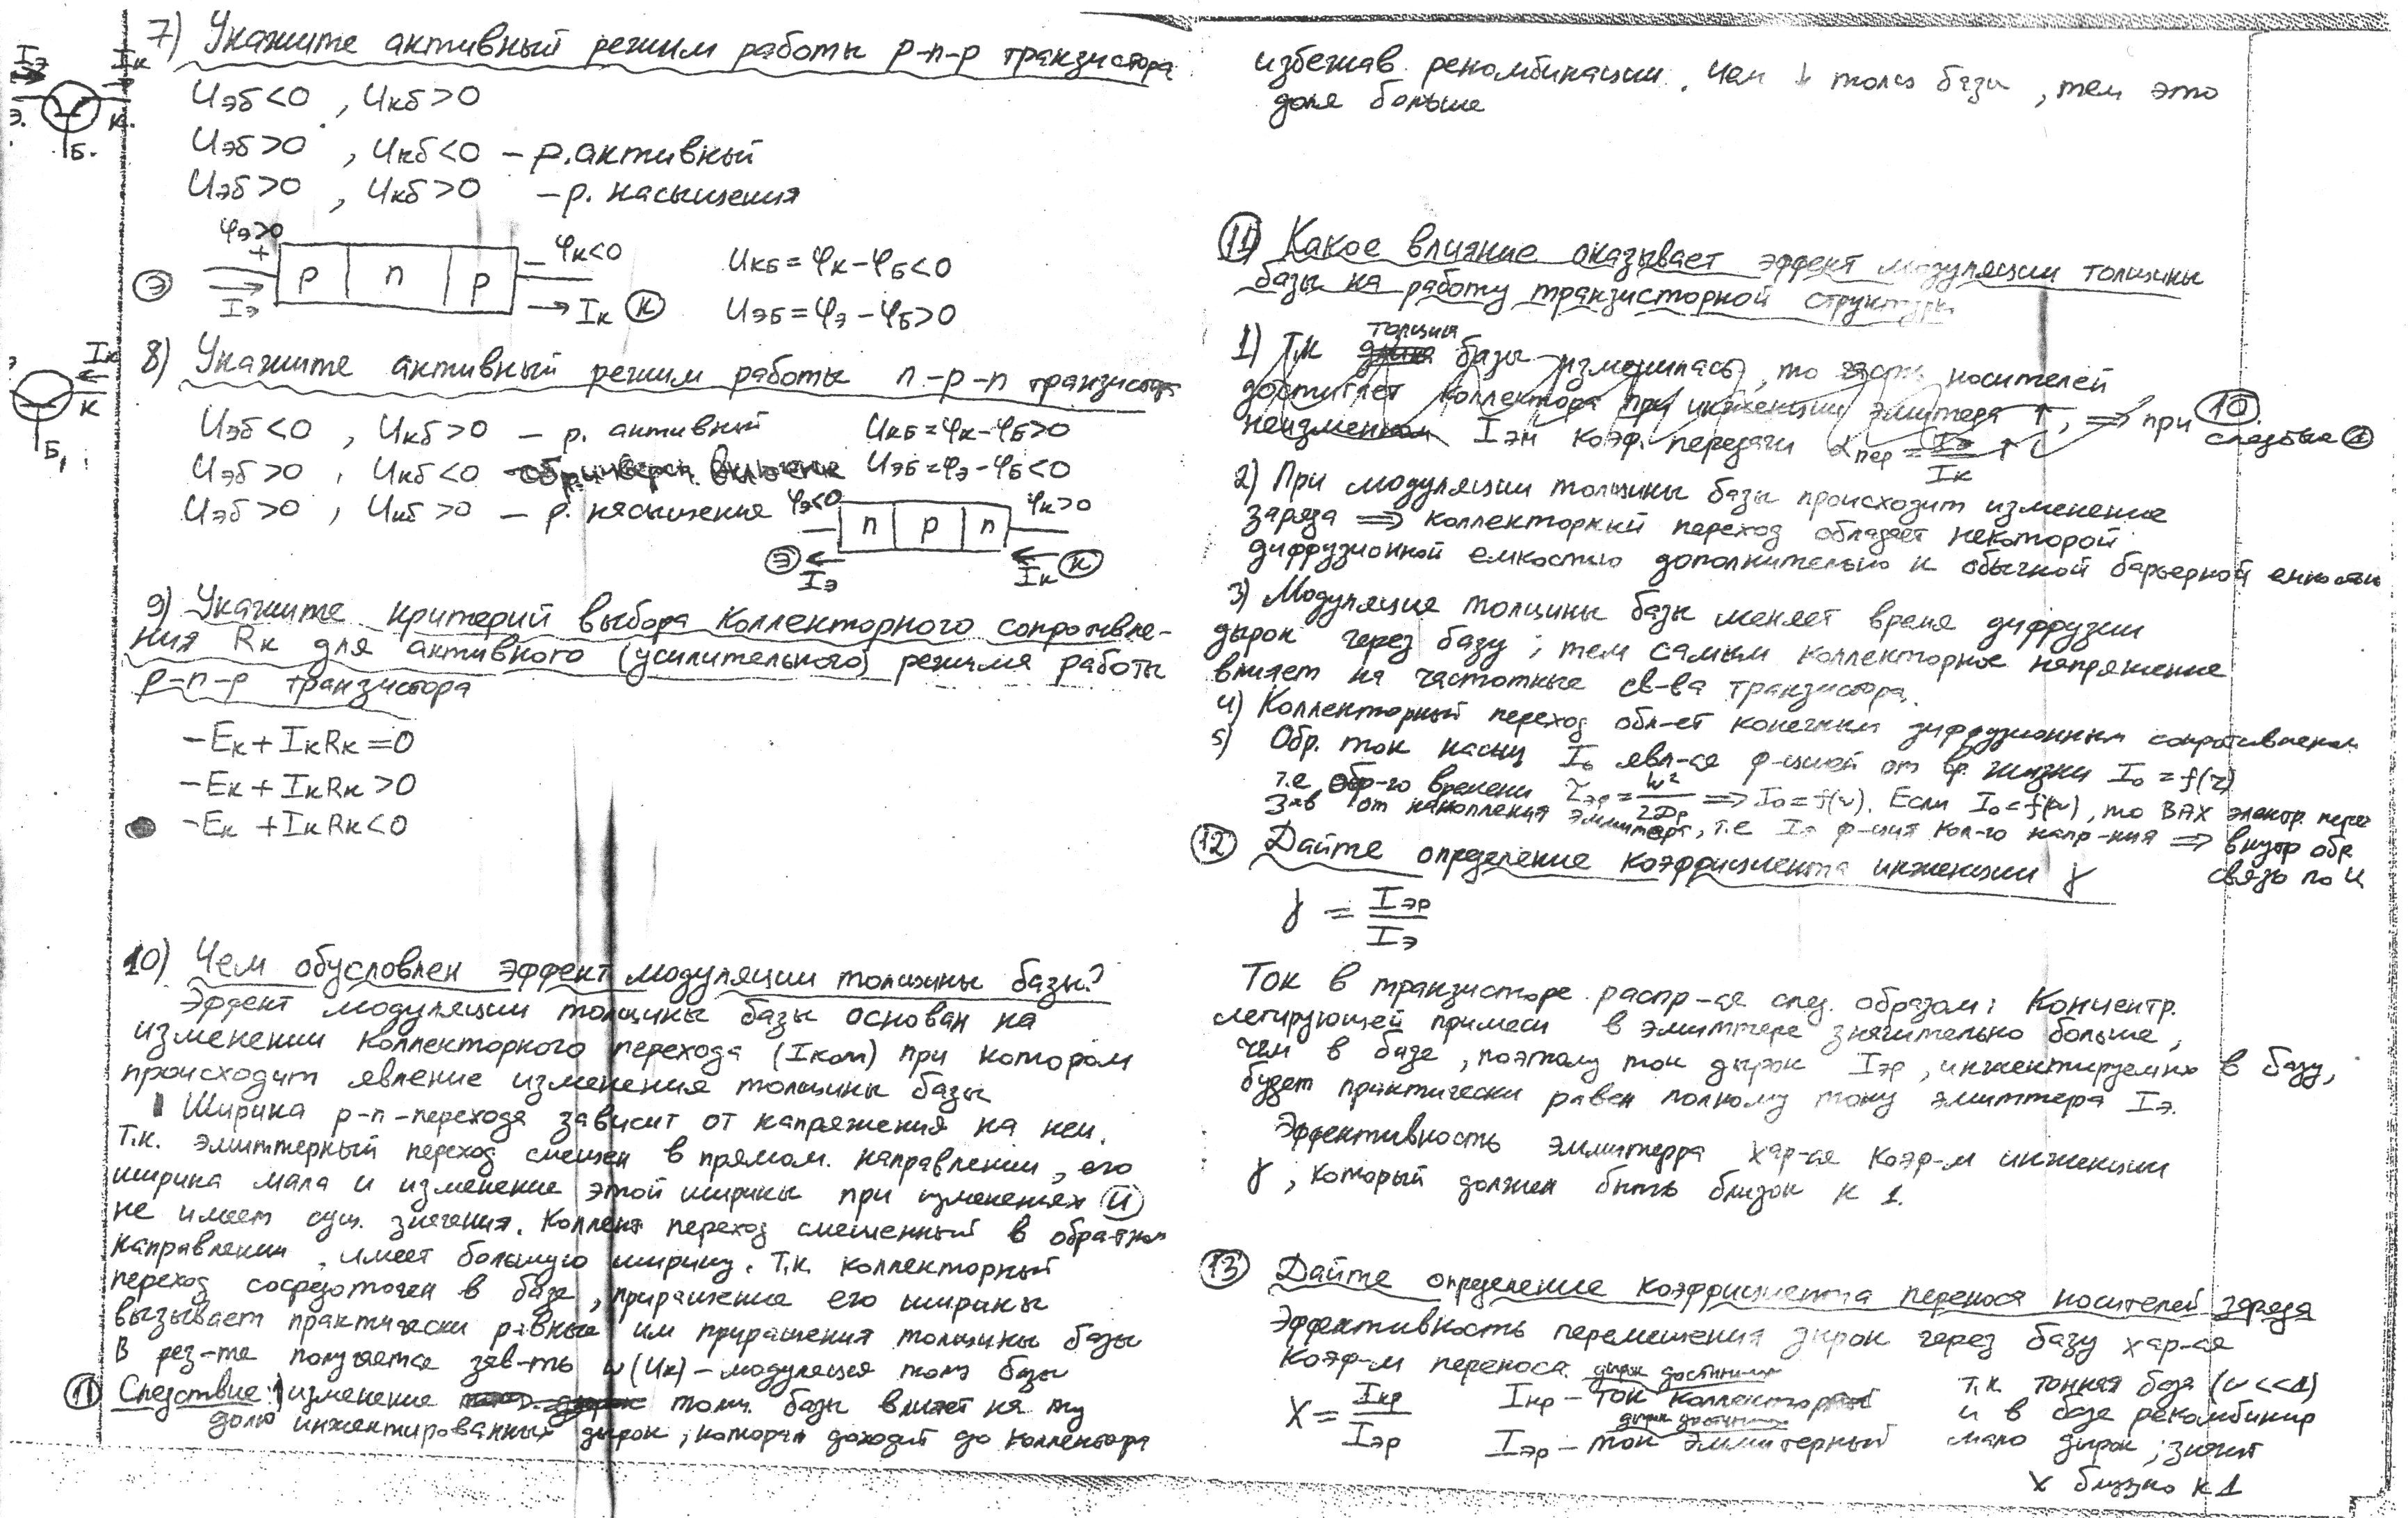 7) Укажите активный режим работы p-n-p транзистора
Uэб<0 , Uкб>0
Uэб>0 , Uкб<0 – р.активный
Uэб>0 , Uкб>0 – р. насыщения
Iэ Iк
Э. К.
Б.
φэ>0 φк<0
+ –
p n p
Э Iэ Iк К
Uкб = φк – φб<0
Uэб = φэ – φб>0
8) Укажите активный режим работы n-p-n транзистора
Uэб<0 , Uкб>0 – р. активный Uкб=φк-φб>0
Uэб>0 , Uкб<0 Uэб=φэ-φб<0
Uэб>0 , Uкб>0 – р. насыщения
Iк
К
Б
φэ<0 φк>0
n p n
Э Iэ Iк К
9) Укажите критерий выбора коллекторного сопротивле-
ния Rк для активного (усилительного) режима работы
p-n-p транзистора
-Eк + IкRк = 0
-Eк + IкRк > 0
-Eк + IкRк < 0
10) Чем обусловлен эффект модуляции толщины базы?
Эффект модуляции толщины базы основан на
изменении коллекторного перехода (Iкол) при котором
происходит явление изменения толщины базы
Ширина p-n-перехода зависит от напряжения на нем.
Т.к. эмиттерный переход смещен в прямом. направлении, его
ширина мала и изменение этой ширины при изменениях U
не имеет сущ. значения. Коллект переход смещенный в обратном
направлении, имеет большую ширину. Т.к. коллекторный
переход сосредоточен в базе, приращение его ширины
вызывает практически равные им приращения толщины базы
В рез-те получается зав-ть w(Uк) – модуляция толщ базы
11 Следствие: 1) изменение толщ. базы влияет на ту
долю инжектированных дырок, которая доходит до коллектора
избежав рекомбинации. Чем ↓ толщ базы, тем это
доля больше
11 Какое влияние оказывает эффект модуляции толщины
базы на работу транзисторной структуры
1) Т.к толщина базы изменилась, то часть носителей
достигает коллектора при инжекции эмиттера ↑, ⇒ при 10.
неизменном Iэн коэф. передачи αпер = Iэ/Iк ↑ следствие 1
2) При модуляции толщины базы происходит изменение
заряда ⇒ коллекторный переход обладает некоторой
диффузионной емкостью дополнительно к обычной барьерной емкости
3) Модуляция толщины базы меняет время диффузии
дырок через базу; тем самым коллекторное напряжение
влияет на частотные св-ва транзистора.
4) Коллекторный переход обл-ет конечным диффузионным сопротивлением
5) Обр. ток насыщ I₀ явл-ся ф-цией от вр. жизни I₀ = f(τ)
т.е обр-го времени τэр = w²/2Dp ⇒ I₀=f(w). Если I₀=f(w), то ВАХ электр. перех
зав от накопления эммитера, т.е I₀ ф-ция кол-го напр-ния ⇒ внутр обр
связь по U
12 Дайте определение коэффициента инжекции γ
γ = Iэр/Iэ
Ток в транзисторе распр-ся след. образом: Концентр.
легирующей примеси в эмиттере значительно больше,
чем в базе, поэтому ток дырок Iэр, инжектируемых в базу,
будет практически равен полному току эмиттера Iэ.
Эффективность эммитерра хар-ся коэф-м инжекции
γ, который должен быть близок к 1.
13 Дайте определение коэффициента переноса носителей заряда
Эффективность перемещения дырок через базу хар-ся
коэф-м переноса.
χ = Iкр/Iэр
Iкр – ток коллекторный
Iэр – ток эммитерный
т.к. тонкая база (w<<1)
и в базе рекомбинир
мало дырок, значит
χ близко к 1